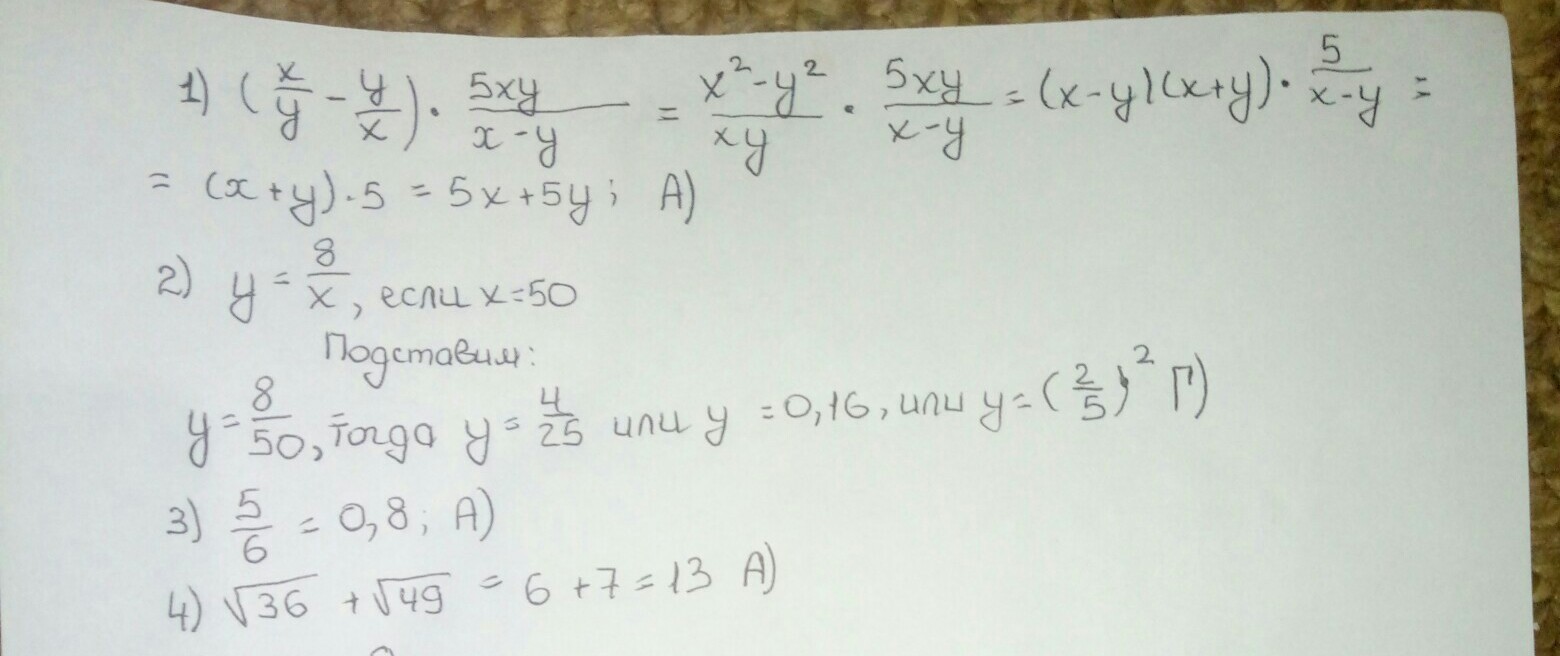 1) (x/y - y/x) · 5xy/(x-y) = (x²-y²)/(xy) · 5xy/(x-y) = (x-y)(x+y) · 5/(x-y) =
= (x+y)·5 = 5x+5y; А)
2) y = 8/x, если x=50
Подставим:
y = 8/50, тогда y = 4/25 или y = 0,16, или y = (2/5)² Г)
3) 5/6 = 0,8; А)
4) √36 + √49 = 6 + 7 = 13 А)